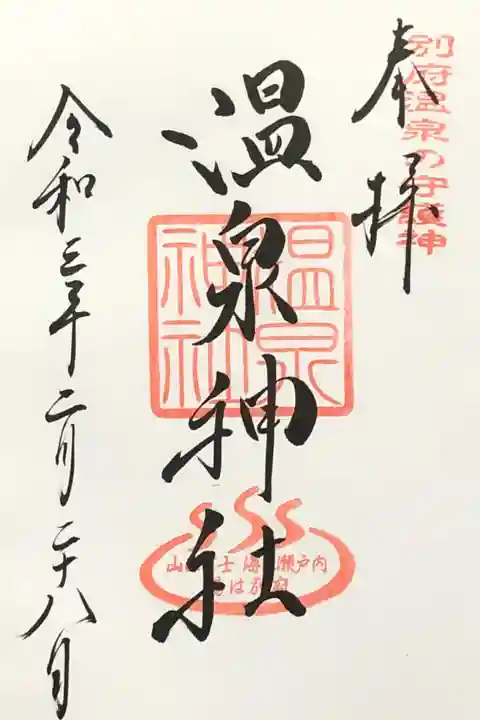 別府温泉の守護神
奉拝
温泉神社
温泉神社
山は富士 海は瀬戸内
湯は別府
令和三年二月二十八日